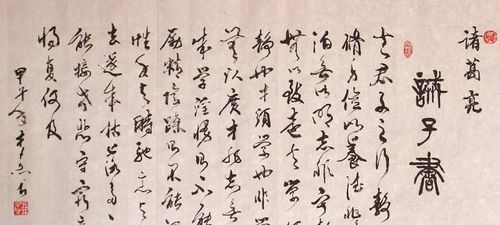 諸葛亮
誡子書
夫君子之行静
修身儉以養德非
泊無以明志非寧
無以致遠夫學
静也才須學也非學
無以廣才非志無
成學淫慢則不能
勵精險躁則不能冶
性年與時馳意與
去遂成枯落多不
能接世悲守窮廬
將復何及
甲午年